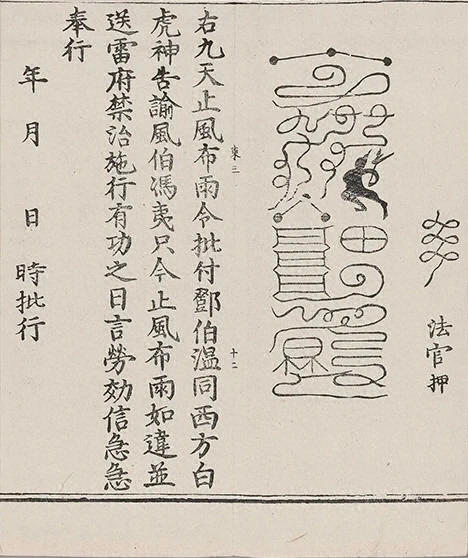 法官押
右九天止風布雨令批付鄧伯溫同西方白
東三 十二
虎神告諭風伯馮夷只今止風布雨如違並
送雷府禁治施行有功之日言勞効信急急
奉行
年 月 日 時批行